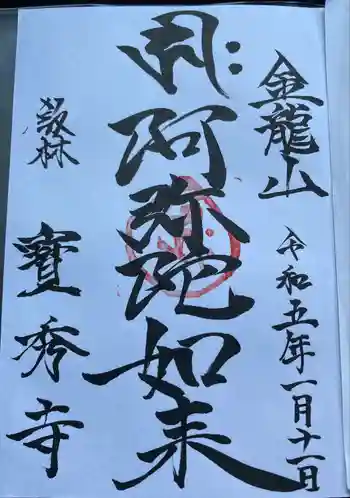 金龍山
令和五年一月十一日
阿弥陀如来
寶秀寺